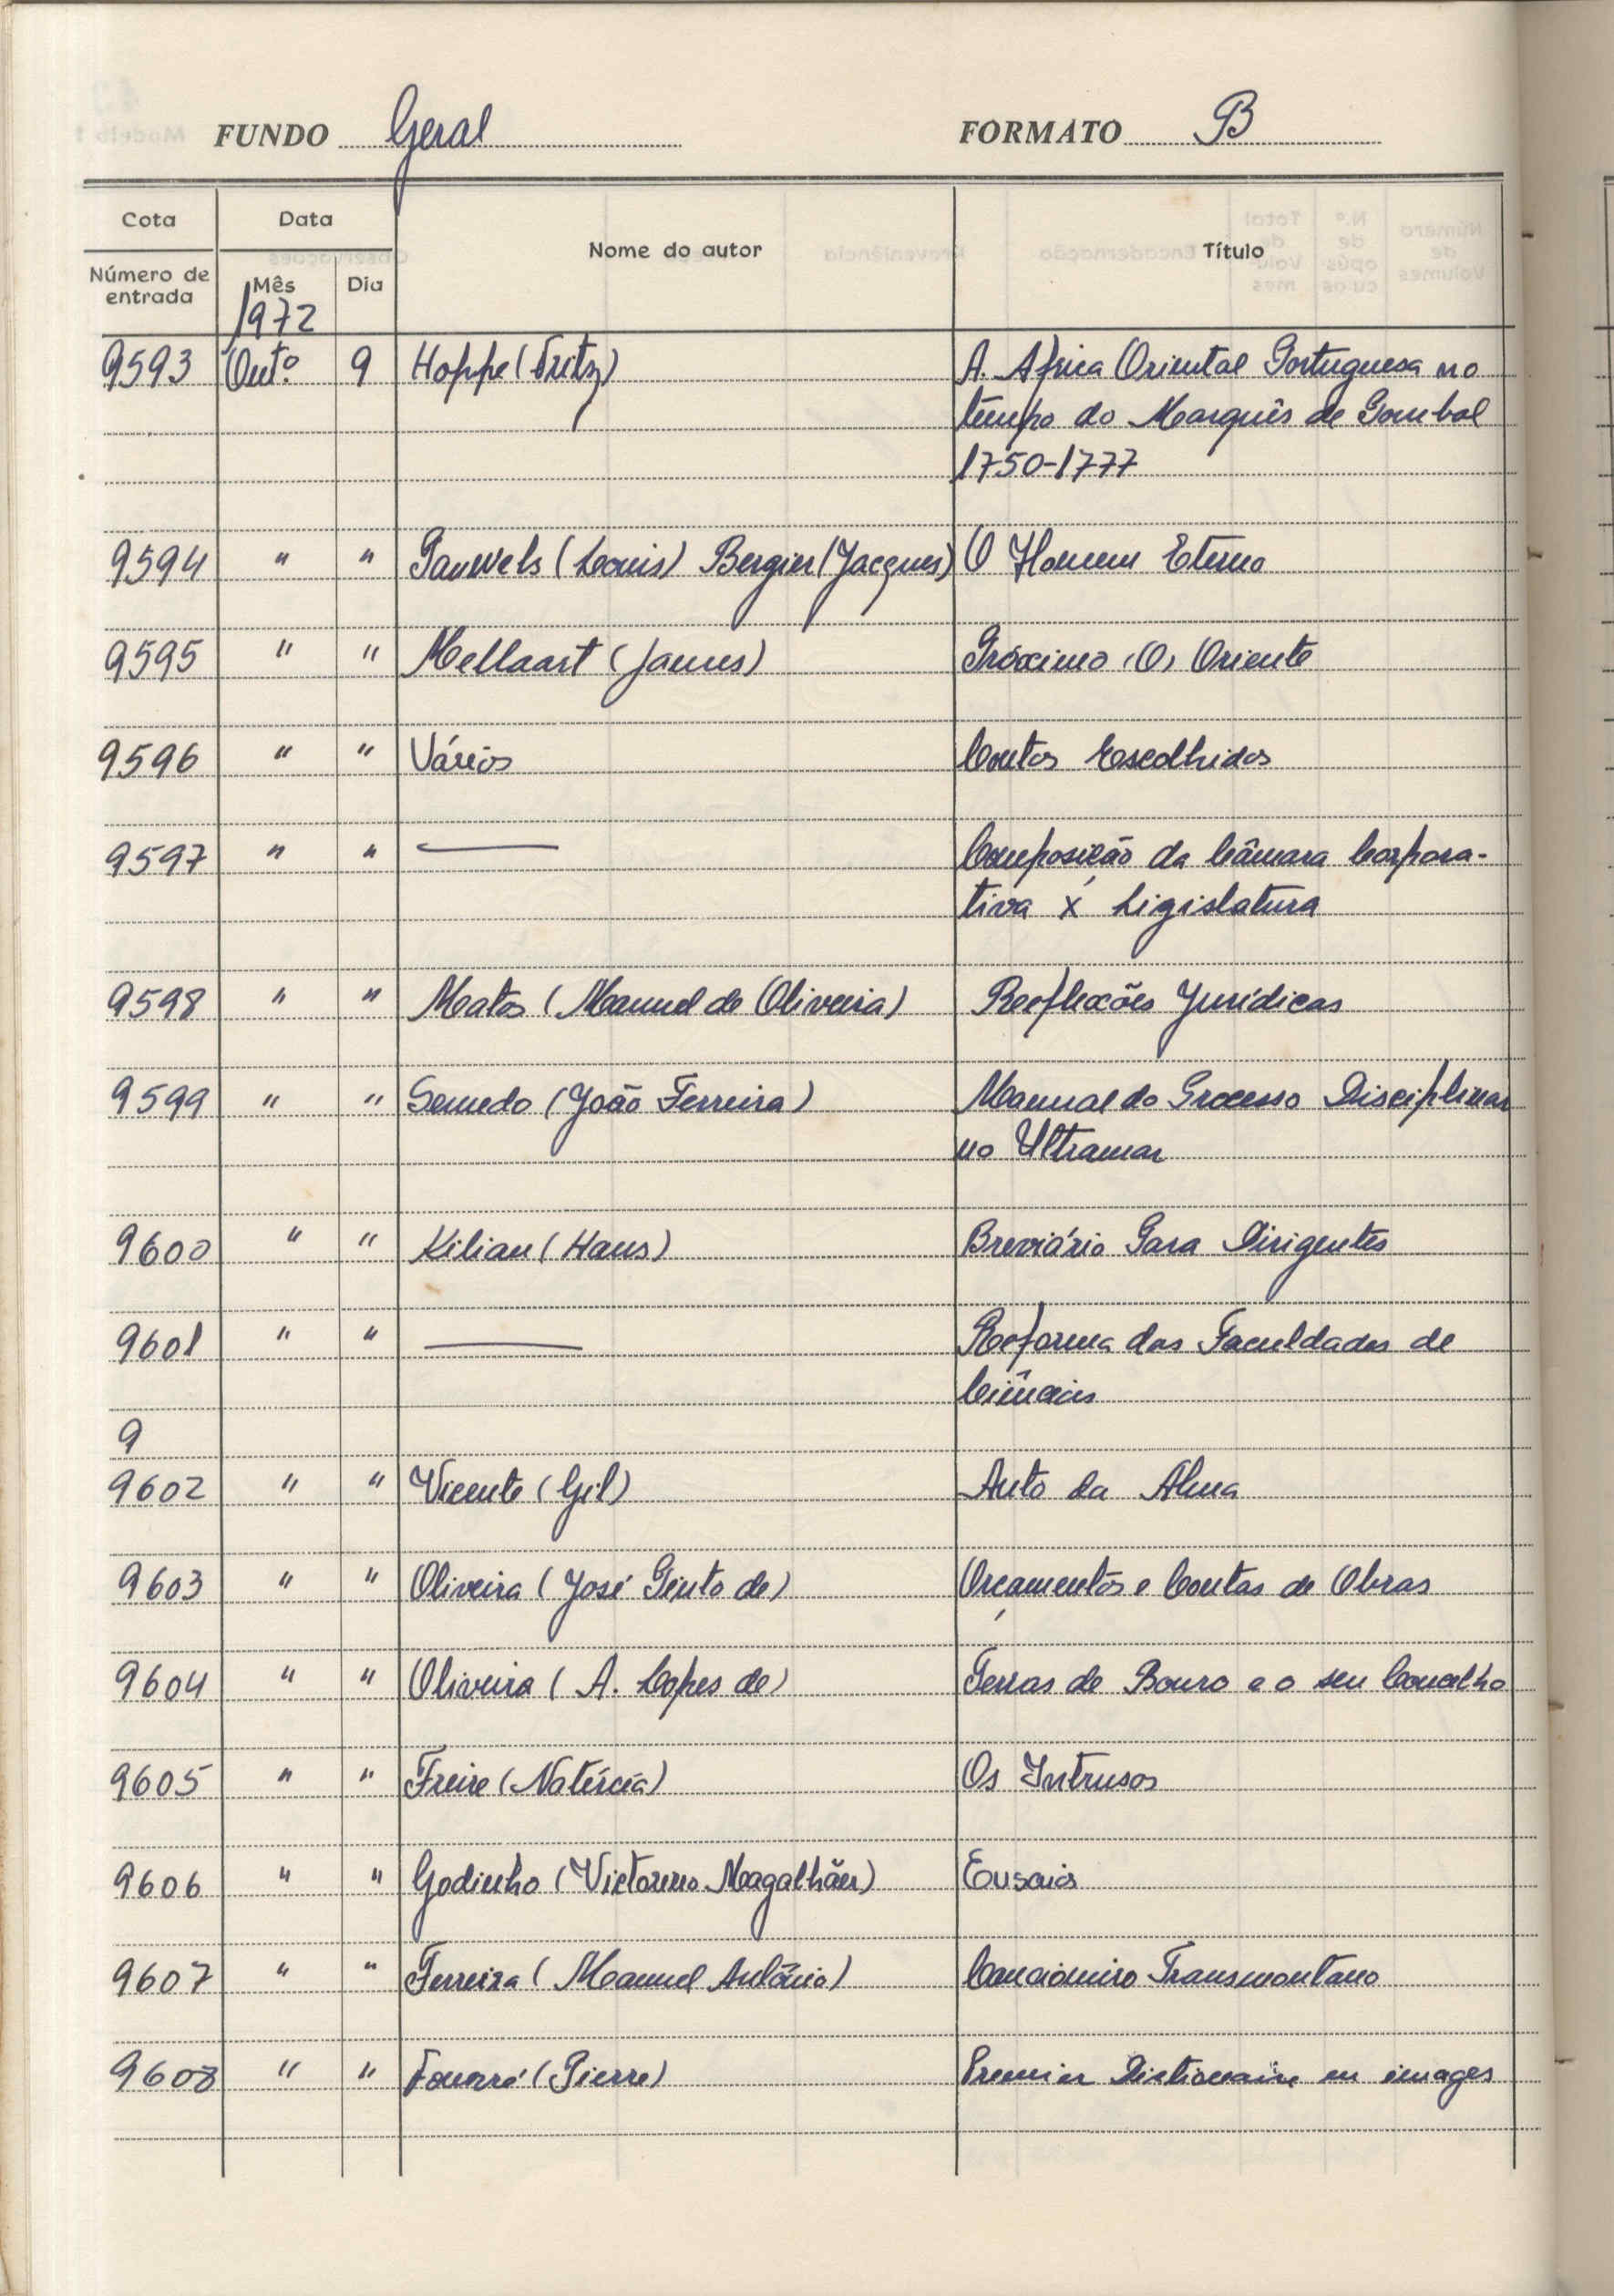 FUNDO Geral FORMATO B
Cota Data Nome do autor Título
Número de entrada Mês Dia
1972
9593 Outº 9 Hoppe (Fritz) A. Africa Oriental Portuguesa no
tempo do Marquês de Pombal
1750-1777
9594 " " Pauwels (Louis) Bergier (Jacques) O Homem Eterno
9595 " " Mellaart (James) Próximo (O) Oriente
9596 " " Vários Contos Escolhidos
9597 " " — Composição da Câmara Corpora-
tiva X Ligislatura
9598 " " Matos (Manuel de Oliveira) Reflexões Jurídicas
9599 " " Semedo (João Ferreira) Manual do Processo Disciplinar
no Ultramar
9600 " " Kilian (Hans) Breviário Para Dirigentes
9601 " " — Reforma das Faculdades de
Ciências
9
9602 " " Vicente (Gil) Auto da Alma
9603 " " Oliveira (José Pinto de) Orçamentos e Contas de Obras
9604 " " Oliveira (A. Lopes de) Terras de Bouro e o seu Concelho
9605 " " Freire (Natércia) Os Intrusos
9606 " " Godinho (Victorino Magalhães) Ensaios
9607 " " Ferreira (Manuel António) Cancioneiro Transmontano
9608 " " Fourré (Pierre) Premier Dictionaire en images